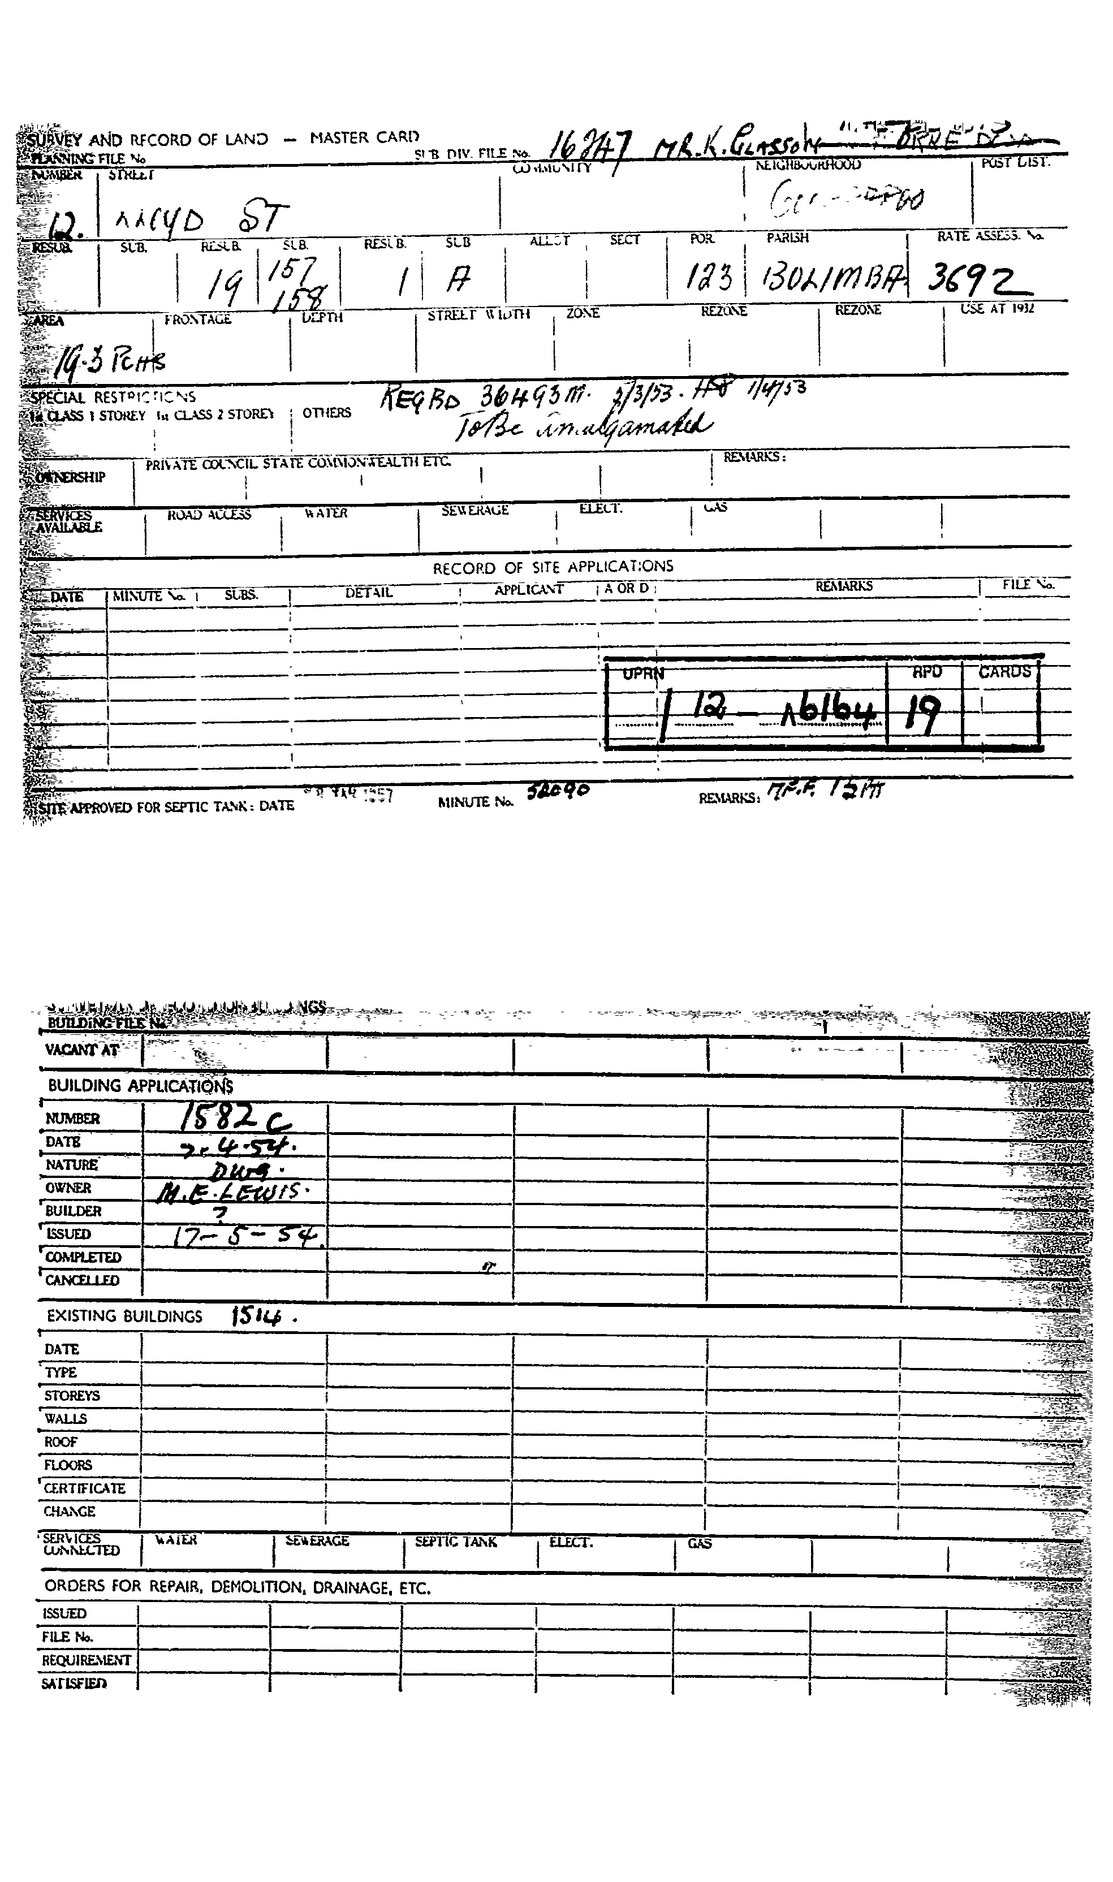 SURVEY AND RECORD OF LAND — MASTER CARD
PLANNING FILE No SUB DIV. FILE No. 16247 MR. K. GLASSON
NUMBER STREET COMMUNITY NEIGHBOURHOOD POST DIST.
12. ST
RESUB. SUB. RESUB. SUB. RESUB. SUB ALLOT SECT POR. PARISH RATE ASSESS. No.
19 157 158 1 A 123 BOLIMBA 3692
AREA FRONTAGE DEPTH STREET WIDTH ZONE REZONE REZONE USE AT 1932
19.3 PCHS
SPECIAL RESTRICTIONS REGBD 36493M. 2/3/53. 1/4/53
1st CLASS 1 STOREY 1st CLASS 2 STOREY OTHERS To Be Amalgamated
OWNERSHIP PRIVATE COUNCIL STATE COMMONWEALTH ETC. REMARKS:
SERVICES AVAILABLE ROAD ACCESS WATER SEWERAGE ELECT. GAS
RECORD OF SITE APPLICATIONS
DATE MINUTE No. SUBS. DETAIL APPLICANT A OR D REMARKS FILE No.
UPRN RPD CARDS
12 — 16164 19
SITE APPROVED FOR SEPTIC TANK: DATE 1957 MINUTE No. 52090 REMARKS:
BUILDING FILE No.
VACANT AT
BUILDING APPLICATIONS
NUMBER 1582 C
DATE 7.4.54.
NATURE DWG.
OWNER M.E. LEWIS.
BUILDER ?
ISSUED 17-5-54
COMPLETED
CANCELLED
EXISTING BUILDINGS 1514.
DATE
TYPE
STOREYS
WALLS
ROOF
FLOORS
CERTIFICATE
CHANGE
SERVICES CONNECTED WATER SEWERAGE SEPTIC TANK ELECT. GAS
ORDERS FOR REPAIR, DEMOLITION, DRAINAGE, ETC.
ISSUED
FILE No.
REQUIREMENT
SATISFIED